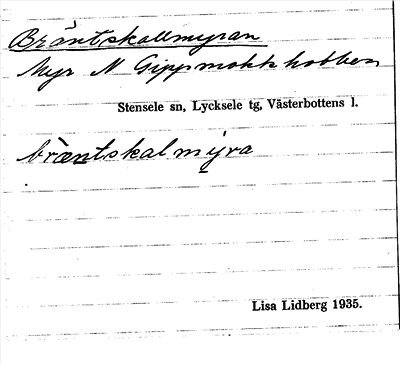 Bräntskallmyran
Myr N Gippmokkhobben
Stensele sn, Lycksele tg, Västerbottens l.
bræ̀ntskalmýra
Lisa Lidberg 1935.